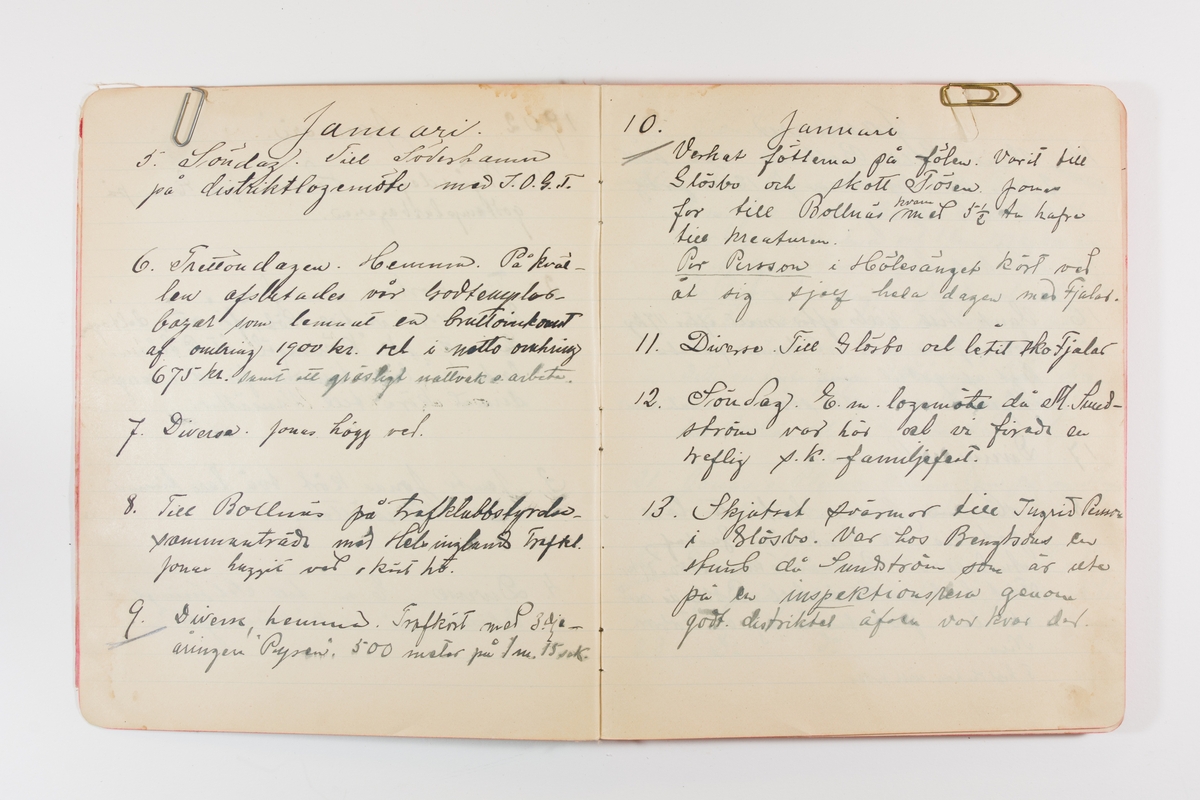 Januari.
5. Söndag. Till Söderhamn
på distriktlogemöte med I.O.G.T.
6. Trettondagen. Hemma. På kväl-
len afslutades vår Godtemplar-
bazar som lemnat en bruttoinkomst
af omkring 1900 kr. och i netto omkring
675 kr. samt ett gräsligt nattvak o arbete.
7. Diversa. Jonas högg ved.
8. Till Bollnäs på trafklubbstyrelse-
sammanträde med Helsinglands Trafkl.
Jonas huggit ved, kört hö.
9. Diversa, hemma. Trafkört med 3.dje-
åringen "Pysen". 500 meter på 1 m. 15 sek.
10. Januari
Verkat fötterna på fölen. Varit till
Glösbo och skott Tösen. Jonas
for till Bollnäs hvarn med 5½ tn hafre
till kreaturen.
Per Persson i Hölesänget kört ved
åt sig sjelf hela dagen med Fjalar.
11. Diversa. Till Glösbo och låtit sko Fjalar
12. Söndag. E.m. logemöte då M. Sund-
ström var här och vi firade en
treflig s.k. familjefest.
13. Skjutsat svärmor till Ingrid Persson
i Glösbo. Var hos Bengtsons en
stund då Sundström som är ute
på en inspektionsresa genom
godt. distriktet äfven var kvar der.